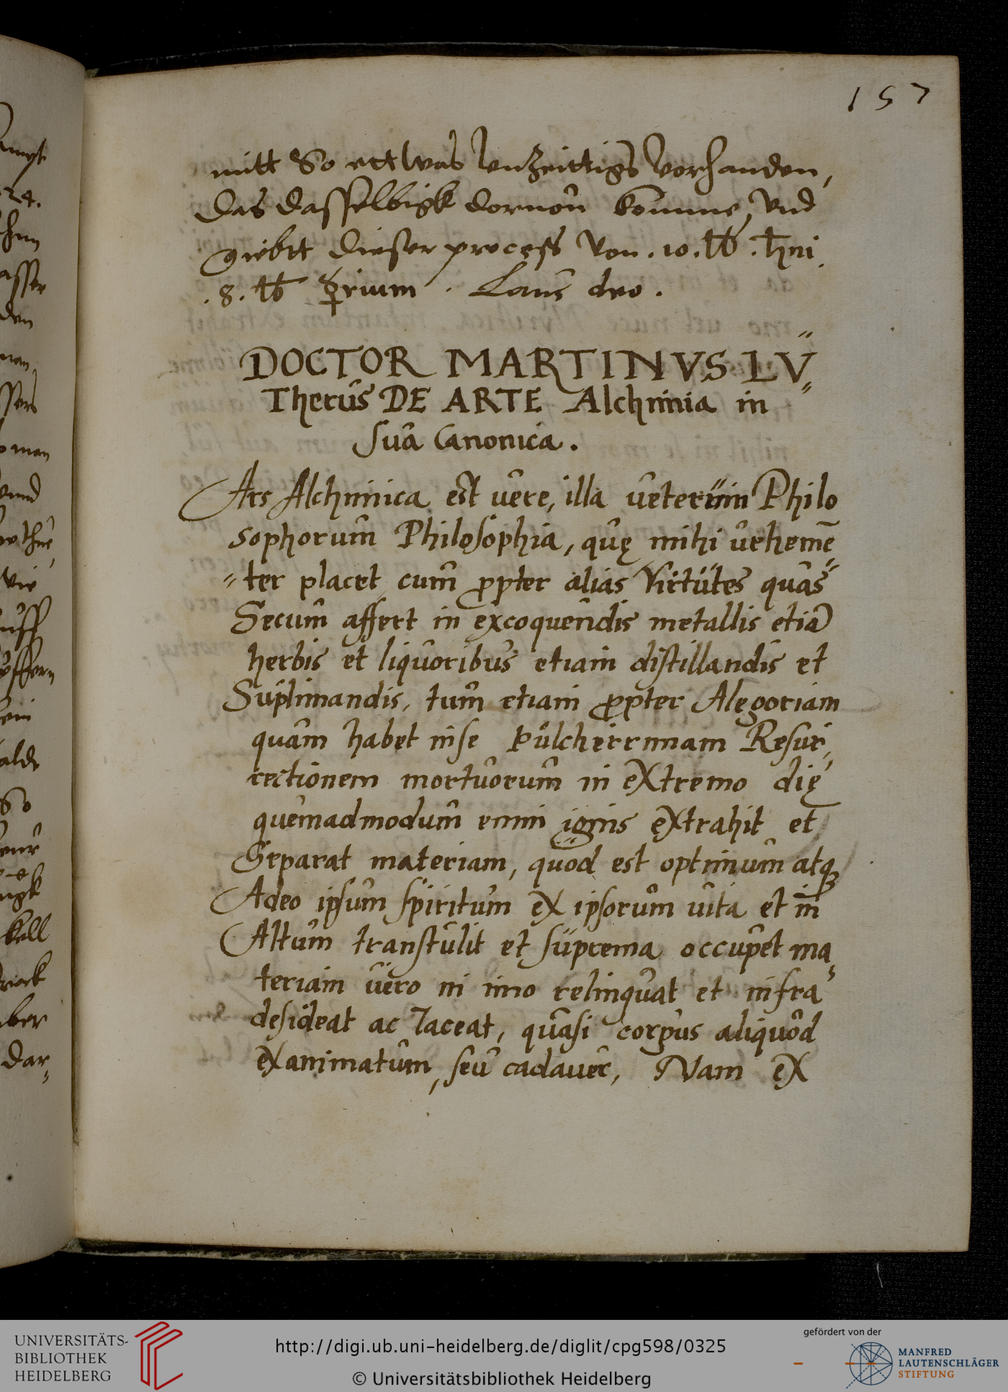 157
mitt So ettwas vnzeittigs vorhanden,
das dasselbigk dornon komme, vnd
giebtt dieser process von .10. ℔ .
.8. ℔ . Laus deo .
DOCTOR MARTINVS LV〃
Therus DE ARTE Alchimia in〃
Sua Canonica .
Ars Alchimica est vere, illa veterum Philo
sophorum Philosophia, quę mihi vehemē〃
〃ter placet cum ꝓpter alias Virtutes quas
Secum affert in excoquendis metallis etiā
herbis et liquoribus etiam distillandis et
Suplimandis, tum etiam ꝓpter Alegoriam
quam habet inse Pulcherrimam Resur,
rectionem mortuorum in extremo die
quemadmodum enim ignis extrahit et
Separat materiam, quod est optimum atq̨
Adeo ipsum spiritum ex ipsorum vita et in
Altum transtulit et suprema occupet ma,
teriam vero in imo relinquat et infra
desideat ac Jaceat, quasi corpus aliquod
exanimatum, seu cadauer, Nam ex
24.
den
kell
ber
dar,
UNIVERSITÄTS-
BIBLIOTHEK
HEIDELBERG
http://digi.ub.uni-heidelberg.de/diglit/cpg598/0325
© Universitätsbibliothek Heidelberg
gefördert von der
MANFRED
LAUTENSCHLÄGER
STIFTUNG